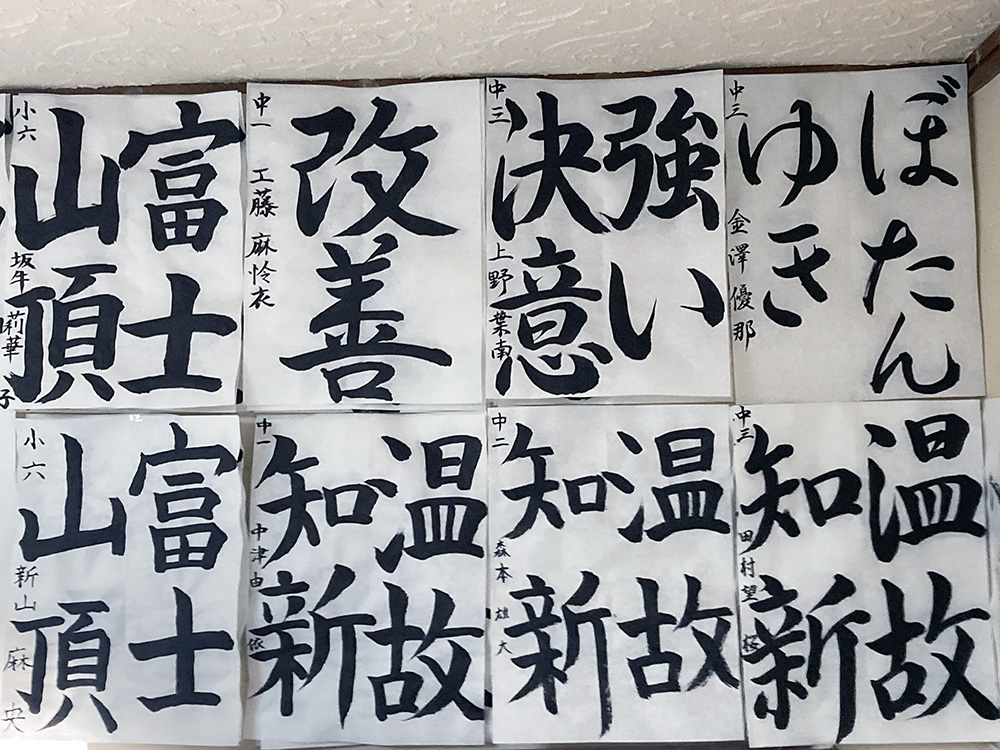 ぼたん
ゆき
中三 金澤優那
強い
決意
中三 上野葉南
改善
中一 工藤麻怜衣
富士
山頂
小六 坂牛莉華
子
温故
知新
中三 田村望
温故
知新
中二 森本雄大
温故
知新
中一 中津由依
富士
山頂
小六 新山麻央